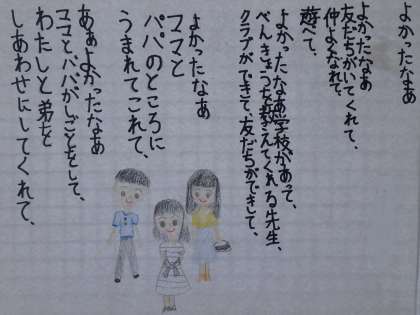 よかったなあ
よかったなあ
友だちがいてくれて、
仲よくなれて、
遊べて、
よかったなあ学校があって、
べんきょうを教えてくれる先生、
クラブができて、友だちができて、
よかったなあ
ママと
パパのところに
うまれてこれて、
あぁよかったなあ
ママとパパがしごとをして、
わたしと弟を
しあわせにしてくれて、